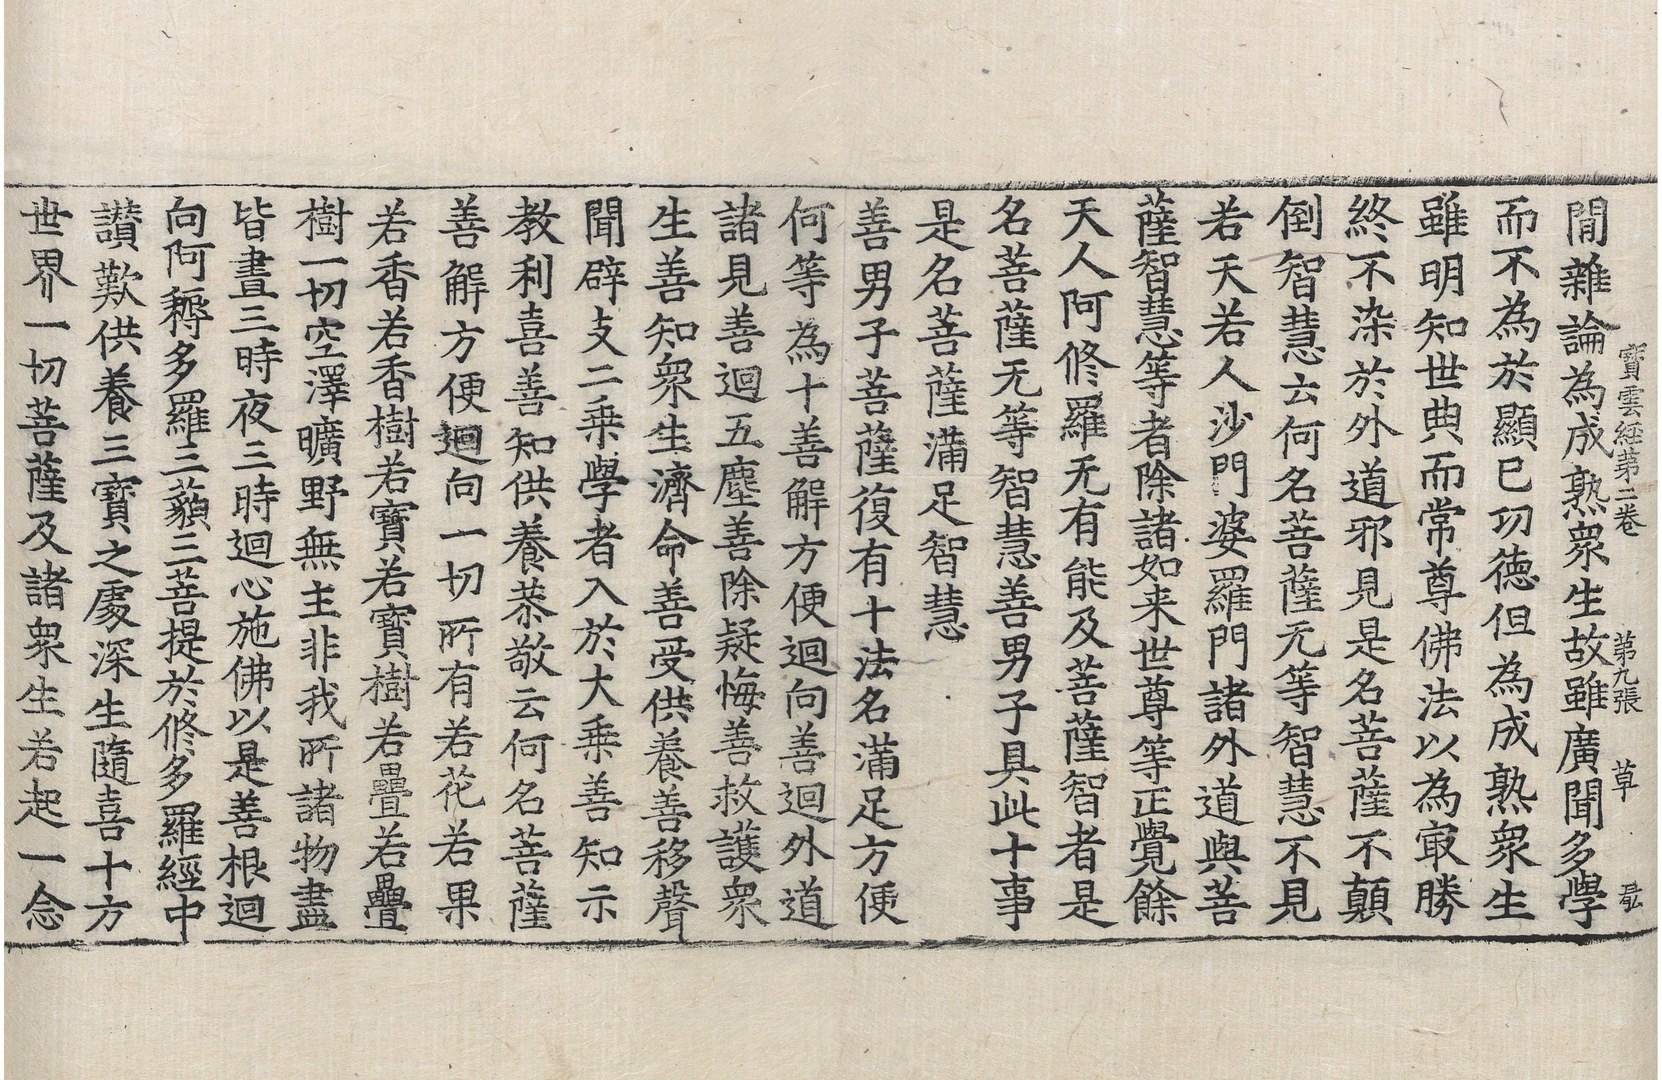 寶雲經苐二卷 第九張 草
閒雜論為成熟衆生故雖廣聞多學
而不為於顯已功德但為成熟衆生
雖明知世典而常尊佛法以為㝡勝
終不染於外道邪見是名菩薩不顛
倒智慧云何名菩薩无等智慧不見
若天若人沙門婆羅門諸外道與菩
薩智慧等者除諸如来世尊等正覺餘
天人阿修羅无有能及菩薩智者是
名菩薩无等智慧善男子具此十事
是名菩薩滿足智慧
善男子菩薩復有十法名滿足方便
何等為十善解方便迴向善迴外道
諸見善迴五塵善除疑悔善救護衆
生善知衆生濟命善受供養善移聲
聞辟支二乗學者入於大乗善知示
教利喜善知供養恭敬云何名菩薩
善解方便迴向一切所有若花若果
若香若香樹若寶若寶樹若疊若疊
樹一切空澤曠野無主非我所諸物盡
皆晝三時夜三時迴心施佛以是善根迴
向阿耨多羅三藐三菩提於修多羅經中
讃歎供養三寶之處深生隨喜十方
世界一切菩薩及諸衆生若起一念